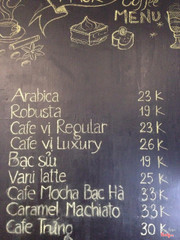 Coffee
MENU
Arabica 23 K
Robusta 19 K
Cafe vị Regular 23 K
Cafe vị Luxury 26 K
Bạc sỉu 19 K
Vani latte 25 K
Cafe Mocha Bạc Hà 33 K
Caramel Machiato 33 K
Cafe Trứng 30 K